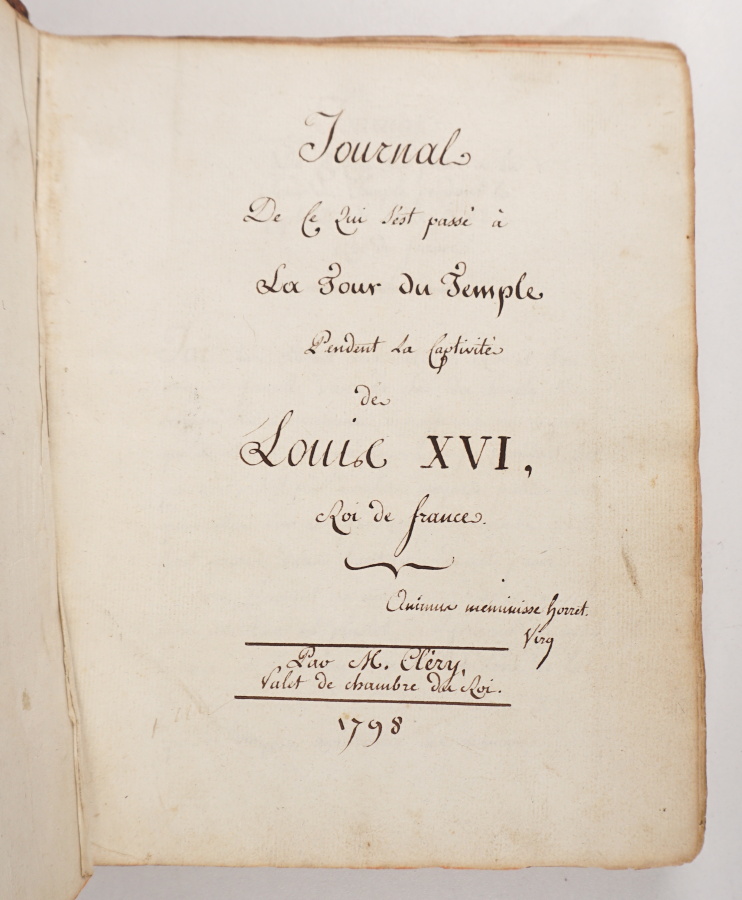 Journal
De Ce Qui s'est passé à
La Tour du Temple
Pendent La Captivité
de
Louis XVI,
Roi de france.
Animus meminisse horret.
Virg
Par M. Cléry,
Valet de chambre du Roi.
1798